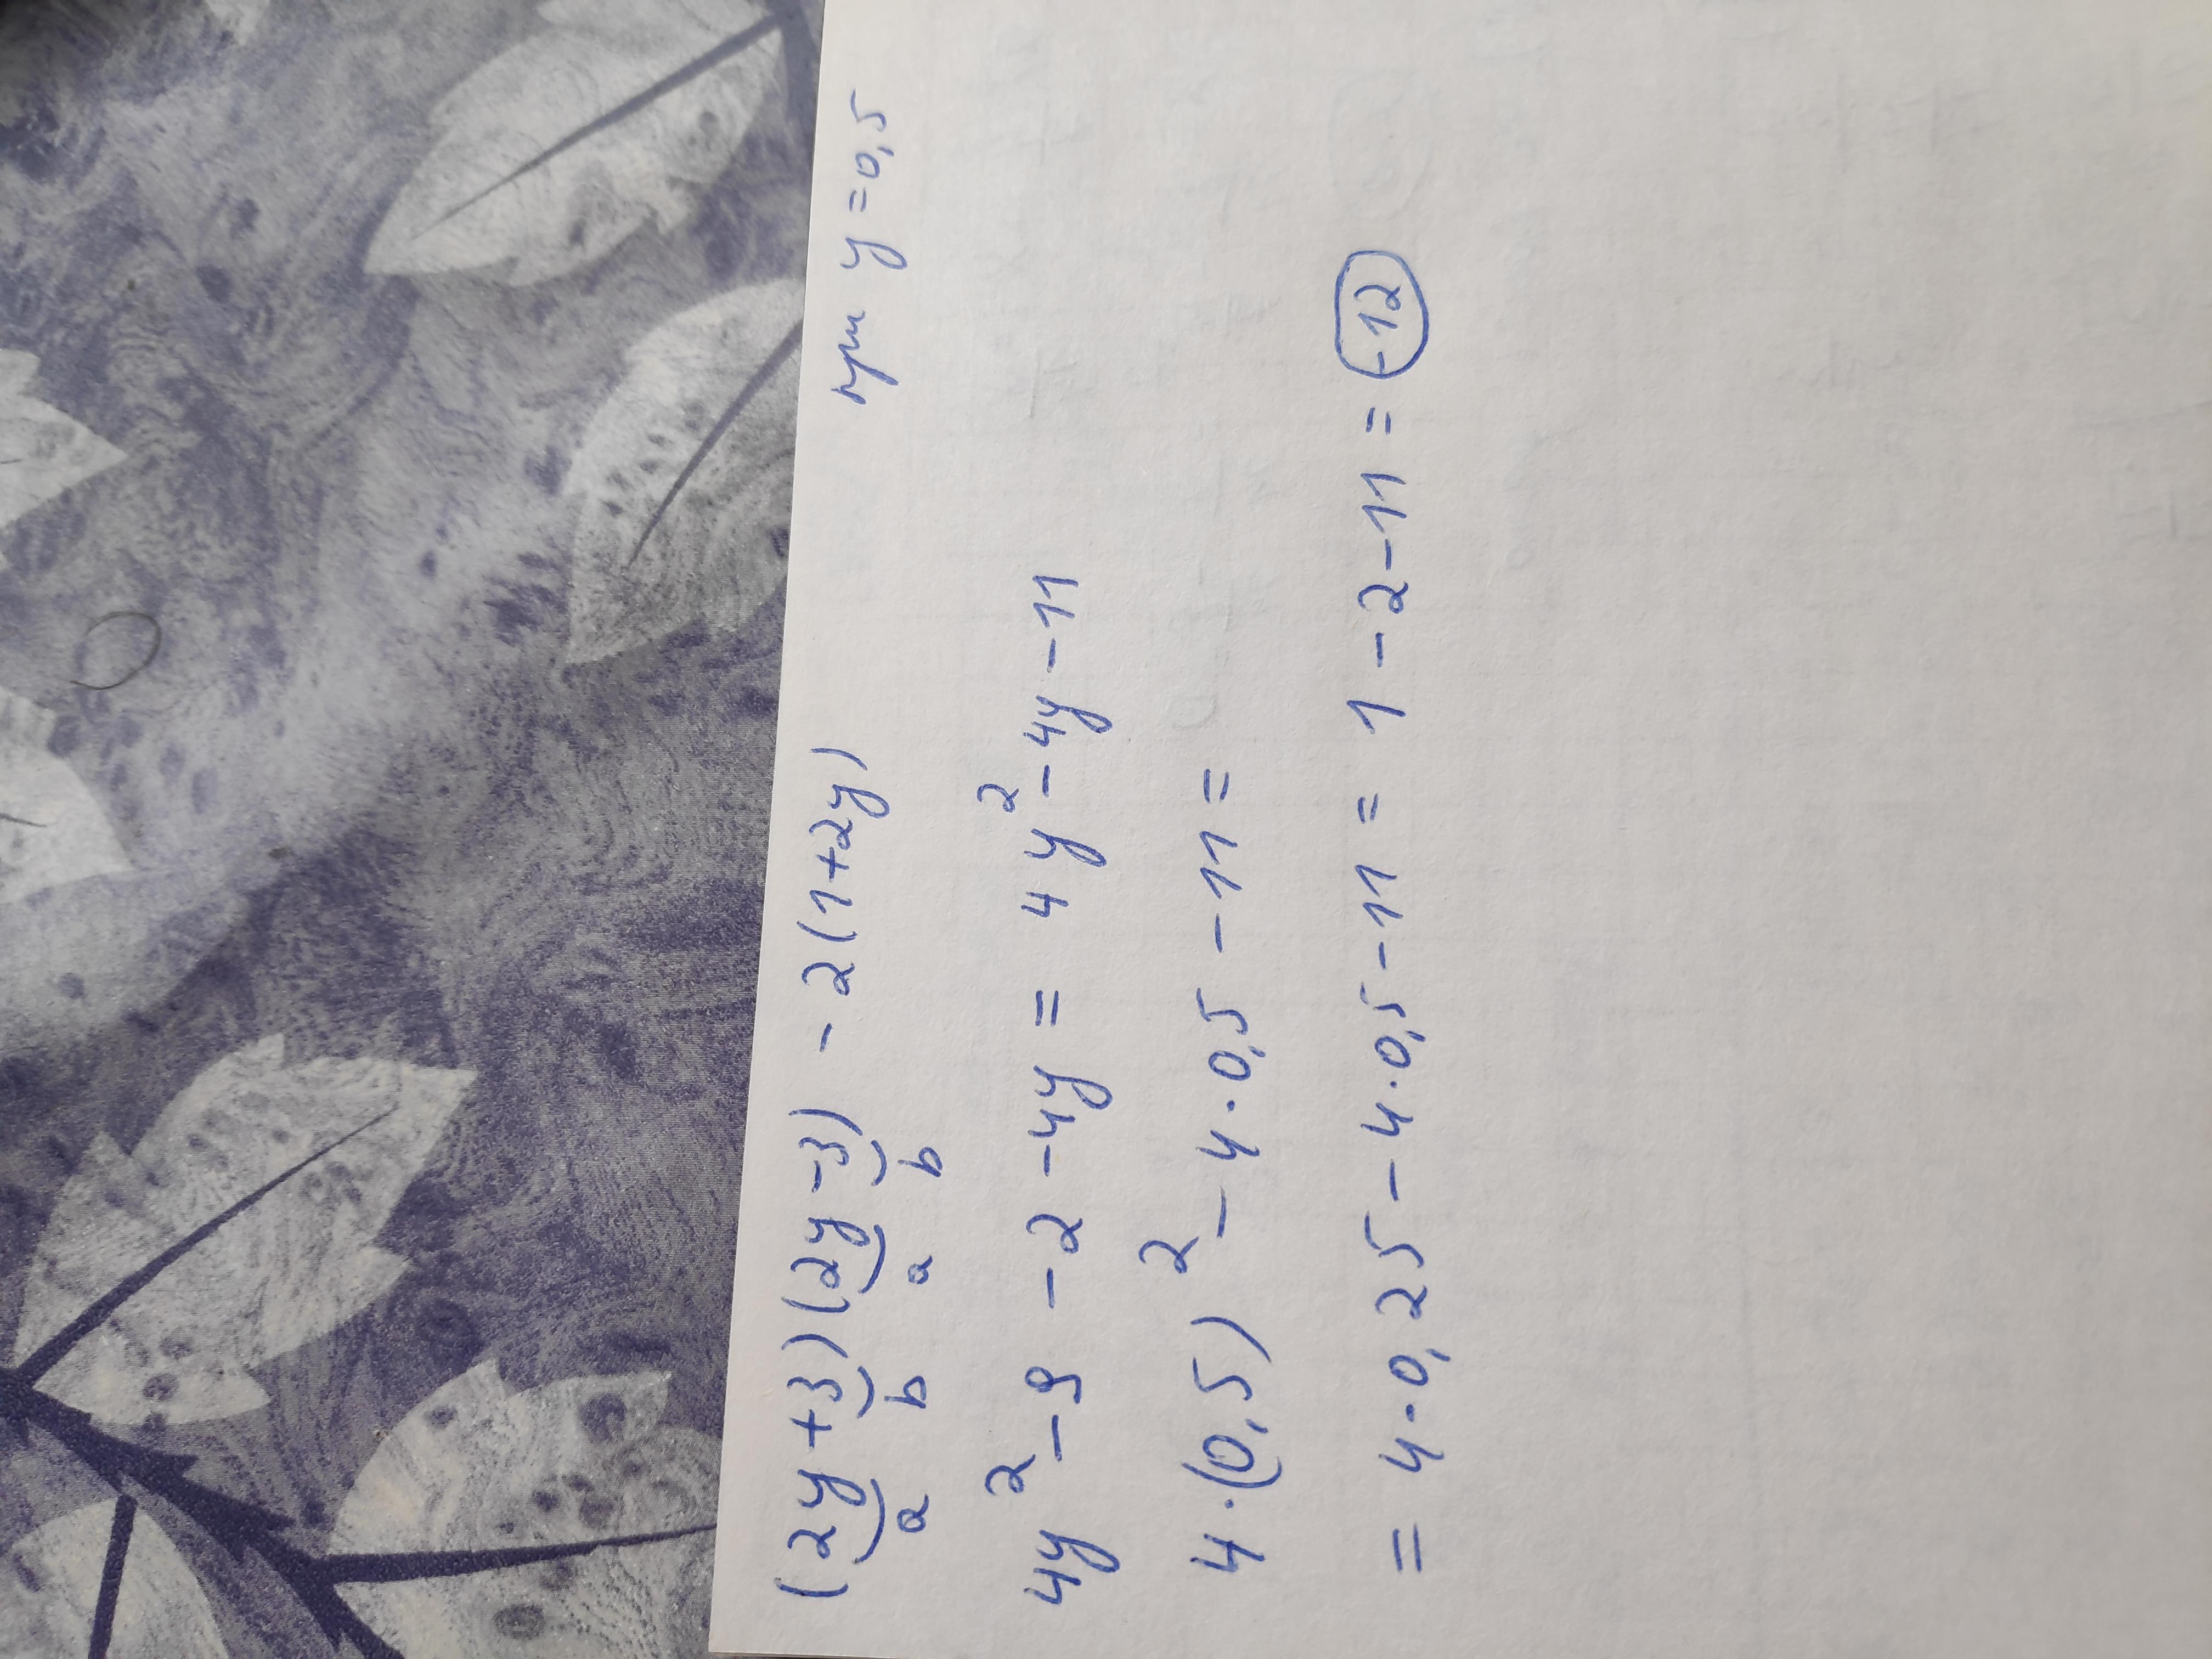 (2y+3)(2y-3) - 2(1+2y) при y=0,5
a b a b
4y²-9 -2 -4y = 4y²-4y-11
4·(0,5)² - 4·0,5 - 11 =
= 4·0,25 - 4·0,5-11 = 1 -2-11 = -12